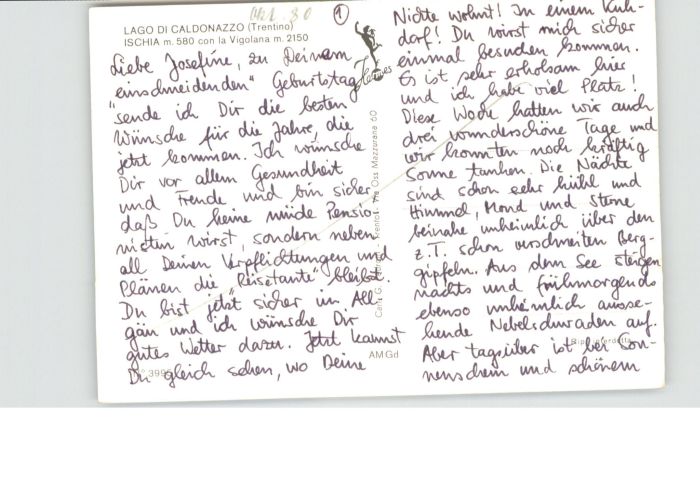 Okt. 80
①
LAGO DI CALDONAZZO (Trentino)
ISCHIA m. 580 con la Vigolana m. 2150
Liebe Josefine, zu Deinem
"einschneidenden" Geburtstag
sende ich Dir die besten
Wünsche für die Jahre, die
jetzt kommen. Ich wünsche
Dir vor allem Gesundheit
und Freude und bin sicher
daß Du keine müde Pensio-
nistin wirst, sondern neben
all Deinen Verpflichtungen und
Plänen die "Reisetante" bleibst.
Du bist jetzt sicher im All-
gäu und ich wünsche Dir
gutes Wetter dazu. Jetzt kannst
Du gleich sehen, wo Deine
Via Oss Mazzurana 60
AMGd
Nichte wohnt! In einem Kuh-
dorf! Du wirst mich sicher
einmal besuchen kommen.
Es ist sehr erholsam hier
und ich habe viel Platz!
Diese Woche hatten wir auch
drei wunderschöne Tage und
wir konnten noch kräftig
Sonne tanken. Die Nächte
sind schon sehr kühl und
Himmel, Mond und Sterne
beinahe unheimlich über den
z.T. schon verschneiten Berg-
gipfeln. Aus dem See steigen
nachts und frühmorgends
ebenso unheimlich ausse-
hende Nebelschwaden auf.
Aber tagsüber ist bei Son-
nenschein und schönem